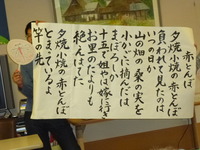 赤とんぼ
夕焼小焼の赤とんぼ
負われて見たのは
いつの日か
山の畑の桑の実を
小かごに摘んだは
まぼろしか
十五で姐やは嫁に行き
お里のたよりも
絶えはてた
夕焼小焼の赤とんぼ
とまっているよ
竿の先